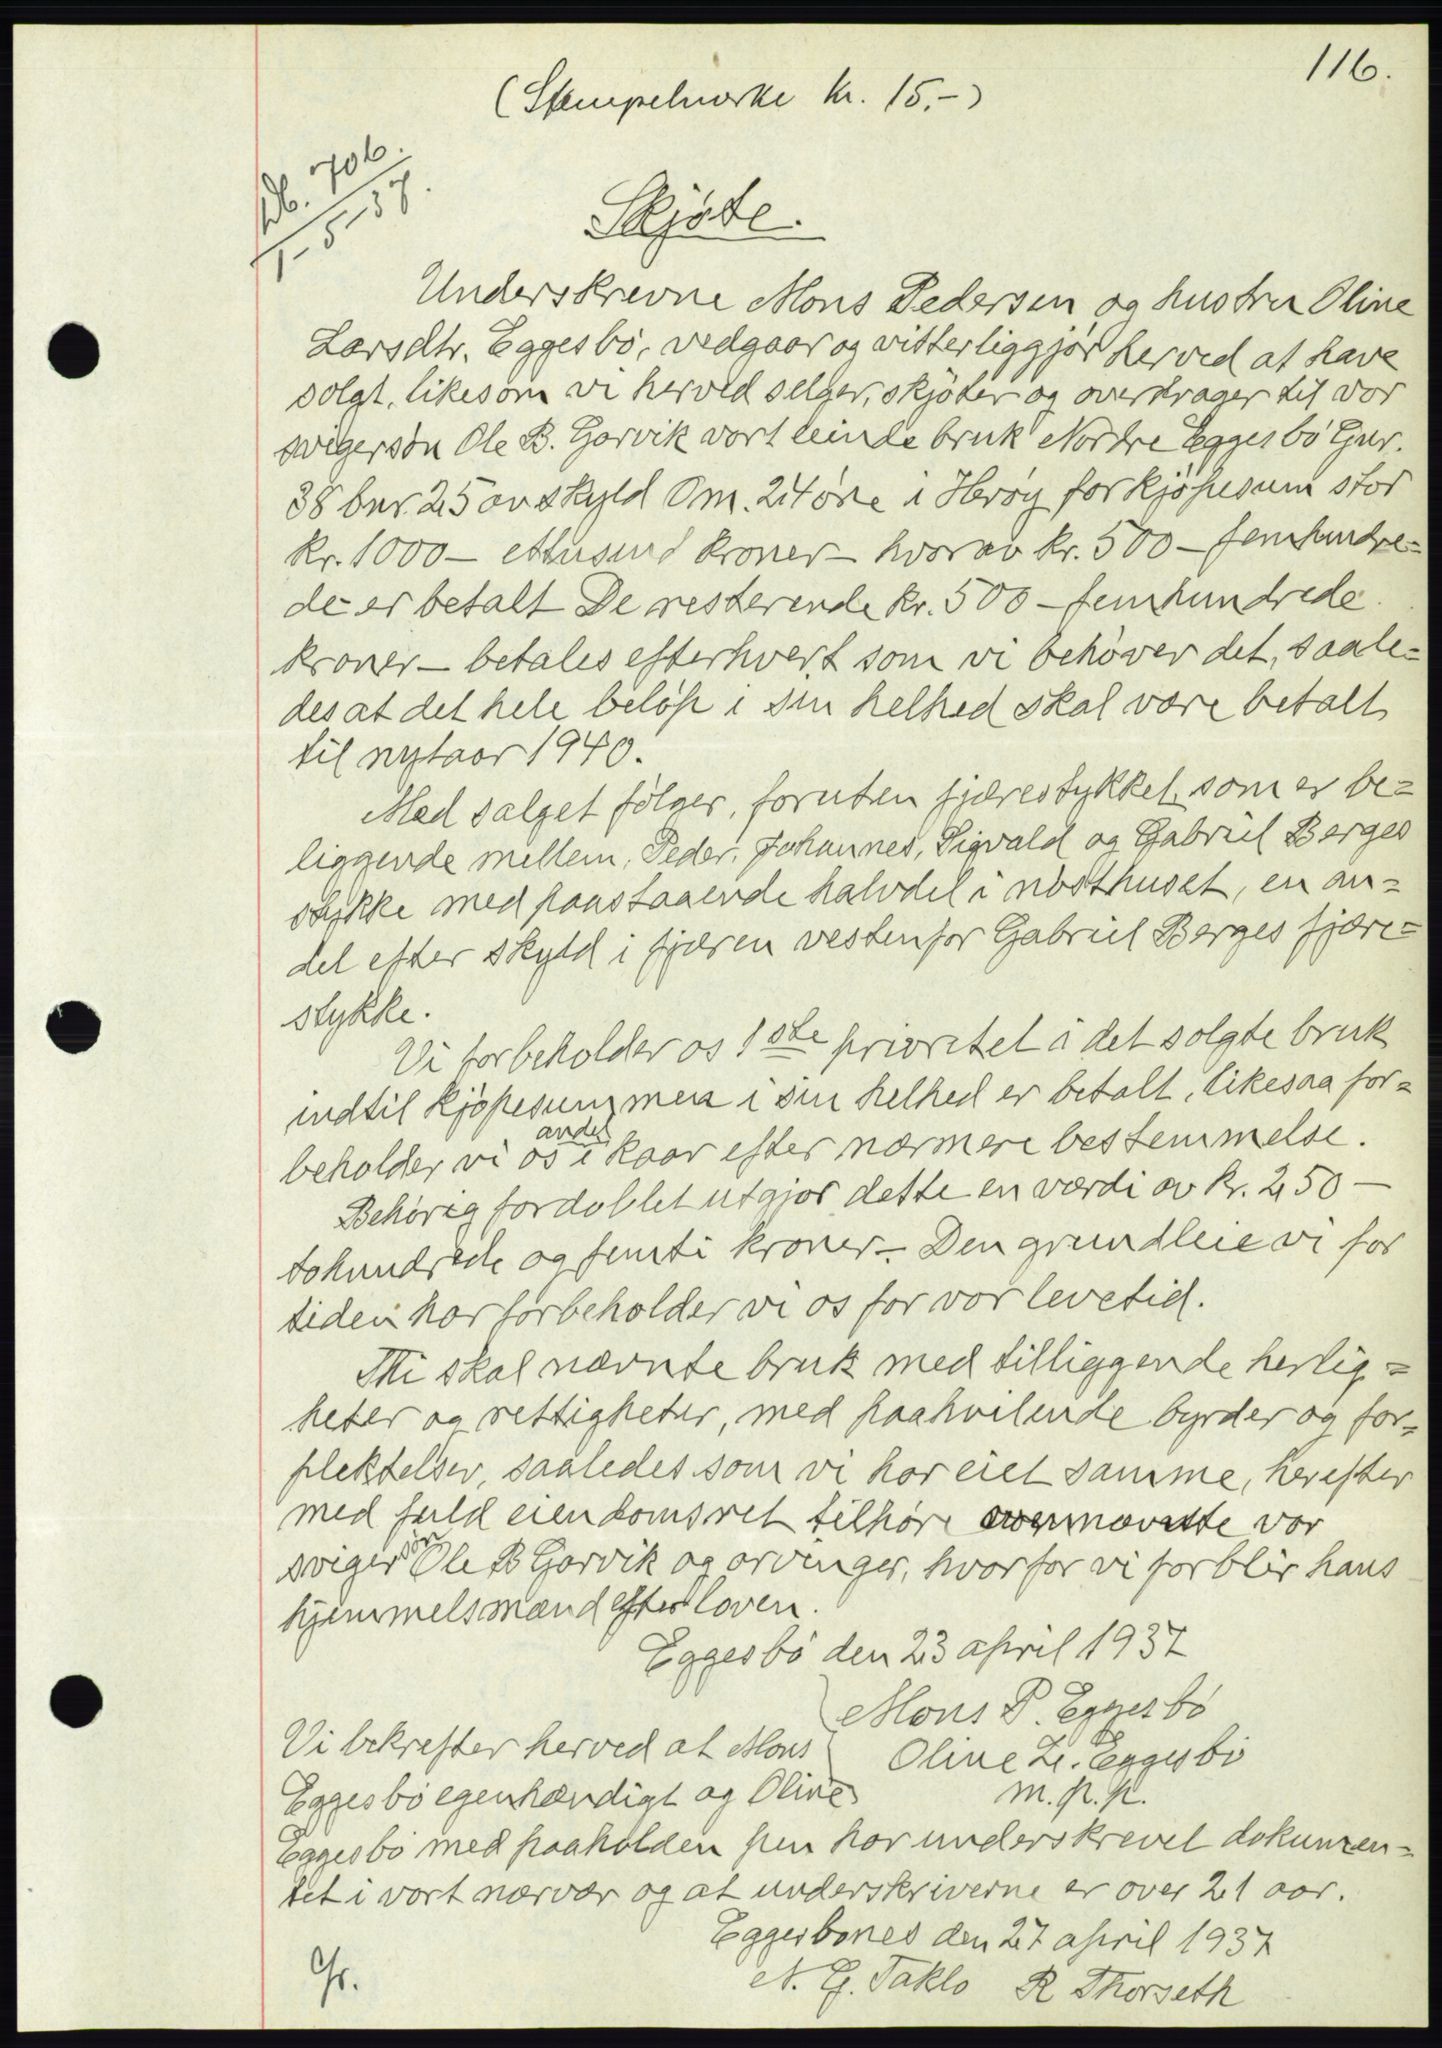 116.
(Stempelmerke kr. 15.-)
Db. 706.
1-5-37.
Skjøte.
Underskrevne Mons Pedersen og hustru Oline
Larsdtr. Eggesbø, vedgaar og vitterliggjør herved at have
solgt, likesom vi herved selger, skjøter og overdrager til vor
svigersøn Ole B. Garvik vort eiende bruk Nordre Eggesbø Gnr.
38 bnr. 25 av skyld 0 m. 24 øre i Herøy for kjøpesum stor
kr. 1000- ettusind kroner- hvorav kr. 500- femhundre=
de- er betalt De resterende kr. 500 - femhundrede
kroner- betales efterhvert som vi behøver det, saale=
des at det hele beløp i sin helhed skal være betalt
til nytaar 1940.
Med salget følger, foruten fjærestykket, som er be=
liggende mellem, Peder, Johannes, Sigvald og Gabriel Berges
stykke med paastaaende halvdel i nøsthuset, en an=
del efter skyld i fjæren vestenfor Gabriel Berges fjære=
stykke.
Vi forbeholder os 1ste prioritet i det solgte bruk
indtil kjøpesummen i sin helhed er betalt, likesaa for=
beholder vi os andel i kaar efter nærmere bestemmelse.
Behørig fordoblet utgjør dette en værdi av kr. 250 -
tohundrede og femti kroner-. Den grundleie vi for
tiden har forbeholder vi os for vor levetid.
Thi skal nævnte bruk med tilliggende herlig=
heter og rettigheter, med paahvilende byrder og for=
pliktelser, saaledes som vi har eiet samme, herefter
med fuld eiendomsret tilhøre ovennævnte vor
svigersøn Ole B Garvik og arvinger, hvorfor vi forblir hans
hjemmelsmænd efter loven.
Eggesbø den 23 april 1937
Mons P. Eggesbø
Oline L. Eggesbø
m. p. p.
Vi bekrefter herved at Mons
Eggesbø egenhændigt og Oline
Eggesbø med paaholden pen har underskrevet dokumen=
tet i vort nærvær og at underskriverne er over 21 aar.
Eggesbønes den 27 april 1937
N. G. Taklo R Thorseth
Gr.